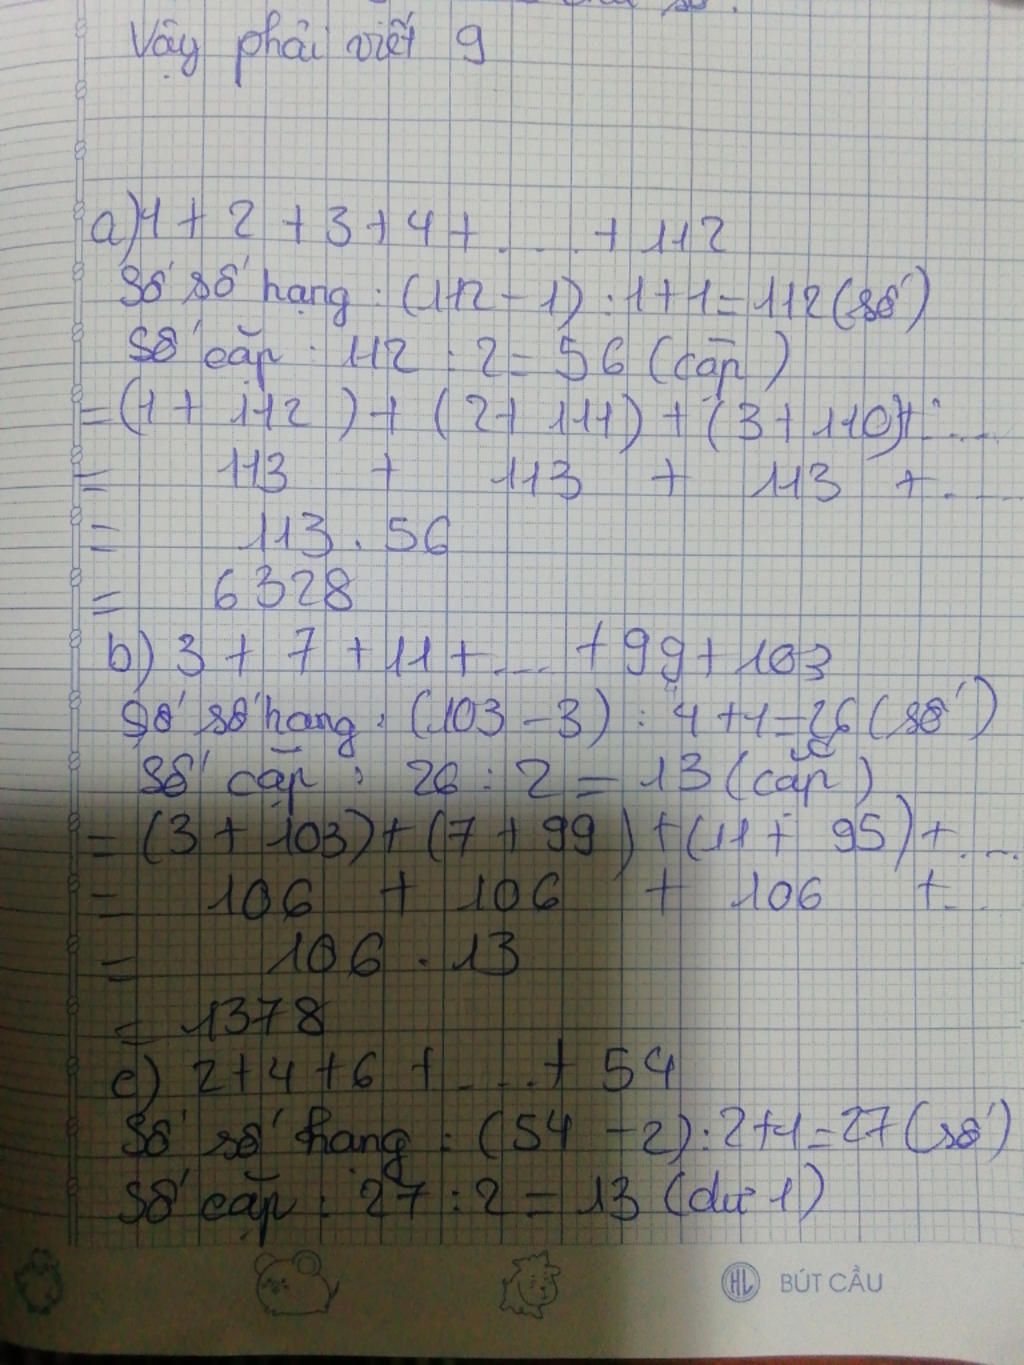 Vậy phải viết 9
a) 1 + 2 + 3 + 4 + .... + 112
Số số hạng : (112 - 1) : 1 + 1 = 112 (số)
Số cặp : 112 : 2 = 56 (cặp)
= (1 + 112) + (2 + 111) + (3 + 110) + ....
= 113 + 113 + 113 + ....
= 113 . 56
= 6328
b) 3 + 7 + 11 + .... + 99 + 103
Số số hạng : (103 - 3) : 4 + 1 = 26 (số)
Số cặp : 26 : 2 = 13 (cặp)
= (3 + 103) + (7 + 99) + (11 + 95) + ....
= 106 + 106 + 106 + ...
= 106 . 13
= 1378
c) 2 + 4 + 6 + .... + 54
Số số hạng : (54 - 2) : 2 + 1 = 27 (số)
Số cặp : 27 : 2 = 13 (dư 1)
HL BÚT CẦU